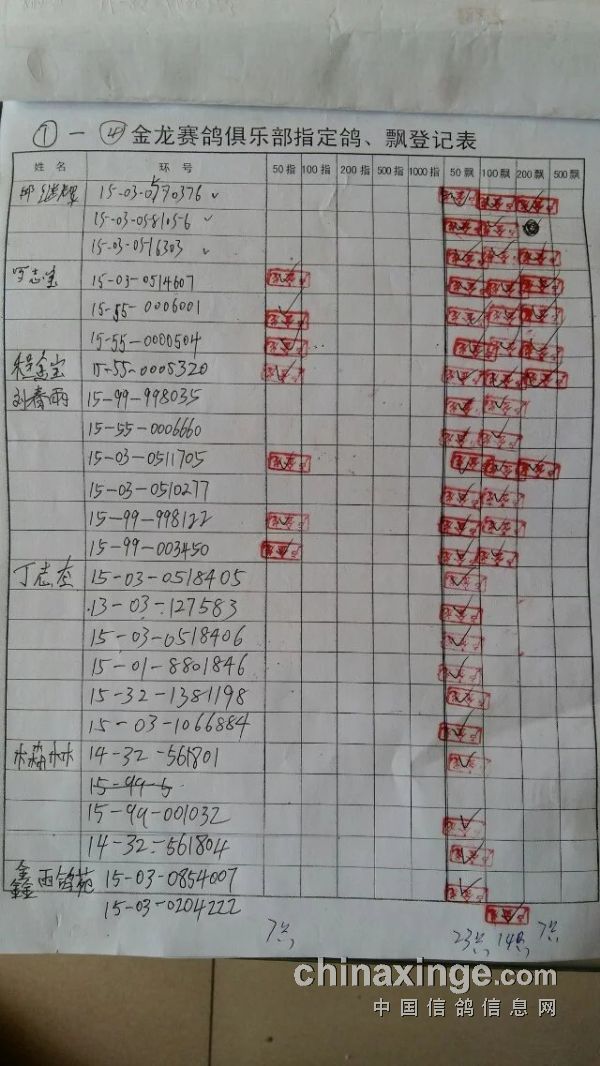 ① 一 ④ 金龙赛鸽俱乐部指定鸽、飘登记表
姓名 环号 50指 100指 200指 500指 1000指 50飘 100飘 200飘 500飘
15-03-0570376
15-03-0581056
15-03-0516303
15-03-0514607
15-55-0006001
15-55-0000504
程金宝 15-55-0005320
刘春雨 15-99-998035
15-55-0006660
15-03-0511705
15-03-0510277
15-99-998122
15-99-003450
丁志 15-03-0518405
13-03-127583
15-03-0518406
15-01-8801846
15-32-1381198
15-03-1066884
林 14-32-561801
15-99-
15-99-001032
14-32-561804
鑫雨鸽苑 15-03-0854007
15-03-0204222
7只 23只 14只 7只
chinaxinge.com
中国信鸽信息网